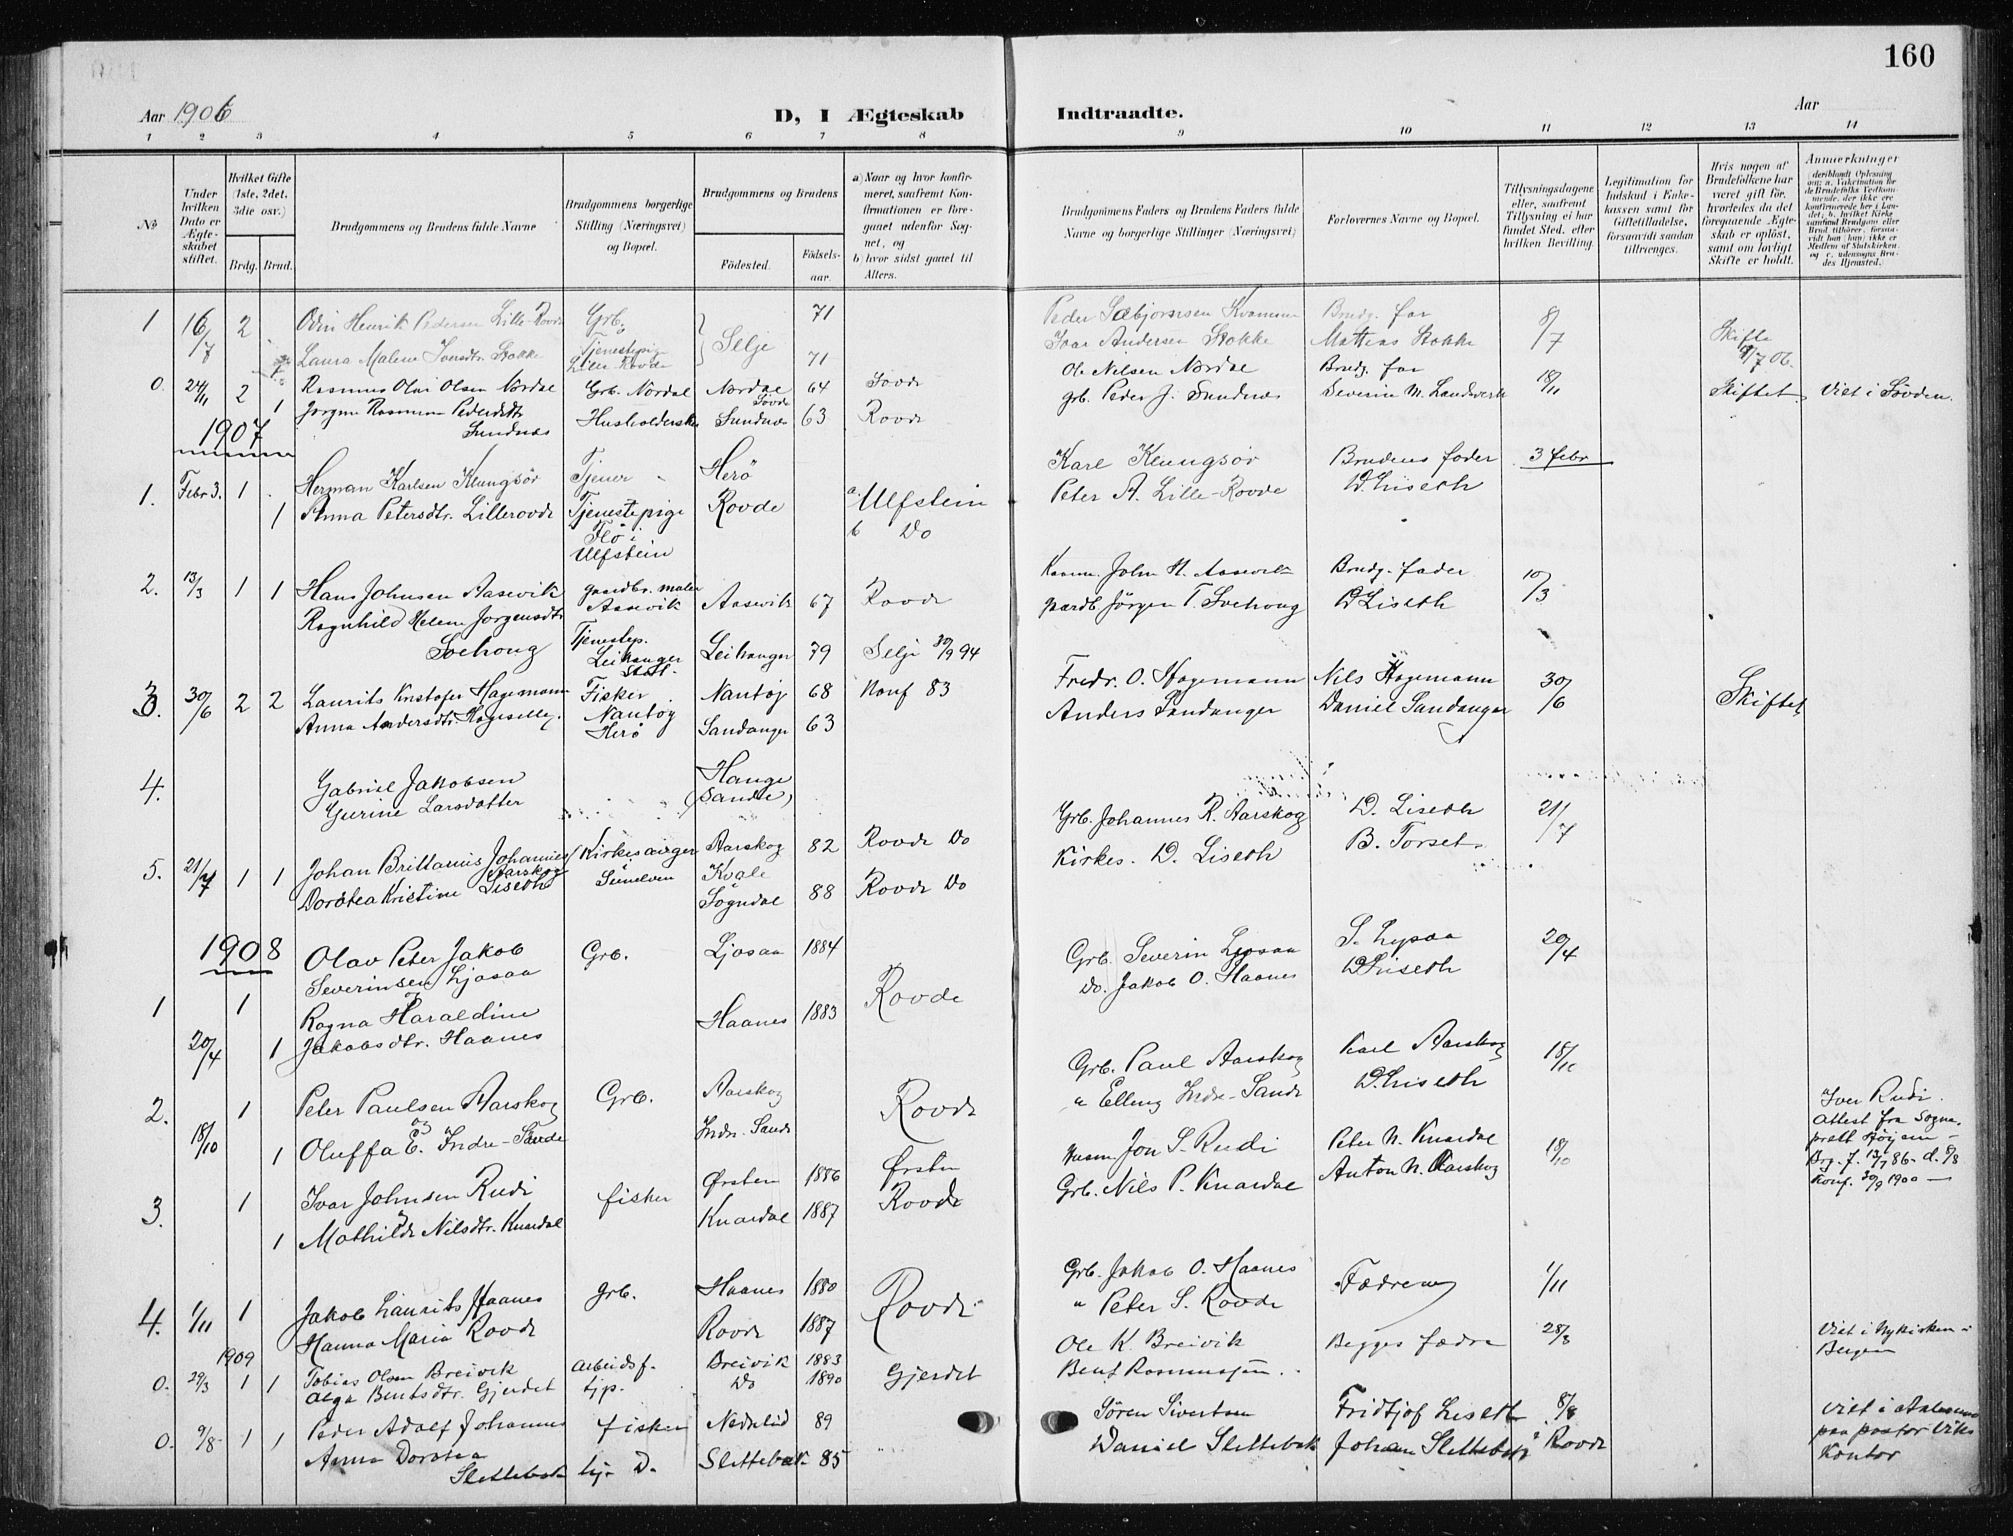 160
Aar 1906
D, I Ægteskab
Indtraadte.
Aar
1 2 3 4 5 6 7 8 9 10 11 12 13 14
№
Under hvilken Dato er Ægteskabet stiftet.
Hvilket Gifte (1ste, 2det, 3die osv.)
Brdg. Brud.
Brudgommens og Brudens fulde Navne
Brudgommens borgerlige Stilling (Næringsvei) og Bopæl.
Brudgommens og Brudens
Födested.
Födselsaar.
a) Naar og hvor konfirmeret, saafremt Konfirmationen er foregaaet udenfor Sognet, og
b) hvor sidst gaaet til Alters.
Brudgommens Faders og Brudens Faders fulde Navne og borgerlige Stillinger (Næringsvei)
Forlovernes Navne og Bopæl.
Tillysningsdagene eller, saafremt Tillysning ei har fundet Sted, efter hvilken Bevilling.
Legitimation for Indskud i Enkekassen samt for Giftetilladelse, forsaavidt saadan tiltrænges.
Hvis nogen af Brudefolkene har været gift för, hvorledes da det foregaaende Ægteskab er oplöst, samt om lovligt Skifte er holdt.
Anmerkninger
1 16/7 2 Odin Henrik Pedersen Lille-Rovde Grb. Selje 71 Brudg. far 8/7 Skifte
Laura Malene Iversdtr. Stokke Tjenestepige Lille Rovde 71 Ivar Andersen Stokke Mattias Stokke
0. 24/11 2 Rasmus Olai Olsen Nordal Grb. Nordal Nordal 64 Ole Nilsen Nordal Brudg. far 18/11 Skiftet Viet i Sövden.
1 Sundnæs Sundnæs 63 Rovde grb. Peder J. Sundnæs Severin M. Landverk
1907
1. Febr 3. 1 Herman Karlsen Klungsör Tjener Herö Karl Klungsör Brudens fader 3 febr
1 Anna Petersdtr. Lillerovde Tjenestepige Flö i Ulfstein Rovde a Ulfstein b Do Peter A. Lille-Rovde D. Liseth
2. 13/3 1 1 Hans Johnsen Aasevik gaardbr. maler Aasevik Aasevik 67 Rovde John H. Aasevik Brudg. fader 10/3
Ragnhild Helene Jörgensdtr. Tjenestep. Leikanger Leikanger 79 Selje 94 gaardb. Jörgen T. D Liseth
3. 30/6 2 2 Laurits Kristofer Hagemann Fisker Nautøy Herö Nautöy 68 Konf 83 Fredr. O. Hagemann Nils Hagemann 30/6 Skiftet
Sandanger 63 Anders Sandanger Daniel Sandanger
4. Gabriel Jakobsen Hauge
Gurine Larsdatter (Sande)
5. 21/7 1 1 Johan Brittanius Johannes Aarskog Kirkesanger Aarskog 82 Rovde Do Grb. Johannes R. Aarskog D. Liseth 21/7
Dorotea Kristine Liseth Kvale Sogndal 88 Rovde Do Kirkes. D. Liseth B. Torset
1908
1 20/4 1 Olav Peter Jakob Severinsen Ljosaa Grb. Ljosaa 1884 Rovde Grb. Severin Ljosaa 20/4
og
1 Ragna Haraldine Jakobsdtr. Haanes Haanes 1883 Do. Jakob O. Haanes D Liseth
2. 18/10 1 Peter Paulsen Aarskog Grb. Aarskog Rovde Grb. Paul Aarskog Karl Aarskog 18/10
og
1 Oluffa E. Indre-Sande Indre-Sande " Elling Indre-Sande D. Liseth
3. 1 Ivar Johnsen Rudi fisker Ørsten 1886 Ørsten Jon S. Rudi Peter N. Knardal 18/10 Iver Rudi. Attest fra Sogneprest
1 Mathilde Nilsdtr. Knardal Knardal 1887 Rovde Grb. Nils P. Knardal Anton N. Aarskog
4. 1/11 1 Jakob Laurits Haanes Grb. Haanes 1880 Rovde Grb. Jakob O. Haanes Fædrene 1/11
Hanna Maria Rovde Rovde 1887 " Peter S. Rovde
1909
0. 29/3 1 1 Tobias Olsen Breivik Arbeidsf. Breivik 1883 Gjerdet Ole K. Breivik Begges fædre 28/3 Viet i Nykirken i Bergen
Olga Bentsdtr. Gjerdet tjp. Do 1890 Bent Rasmussen
0. 9/8 1 1 Peder Adolf Johannes fisker Nedrelid 89 Sören Sivertsen Fridtjof Liseth 8/8 Viet i Aalesund paa pastor Viks Kontor
Anna Dorotea Slettebak Slettebak 85 Daniel Slettebak Johan Slettebak Rovde